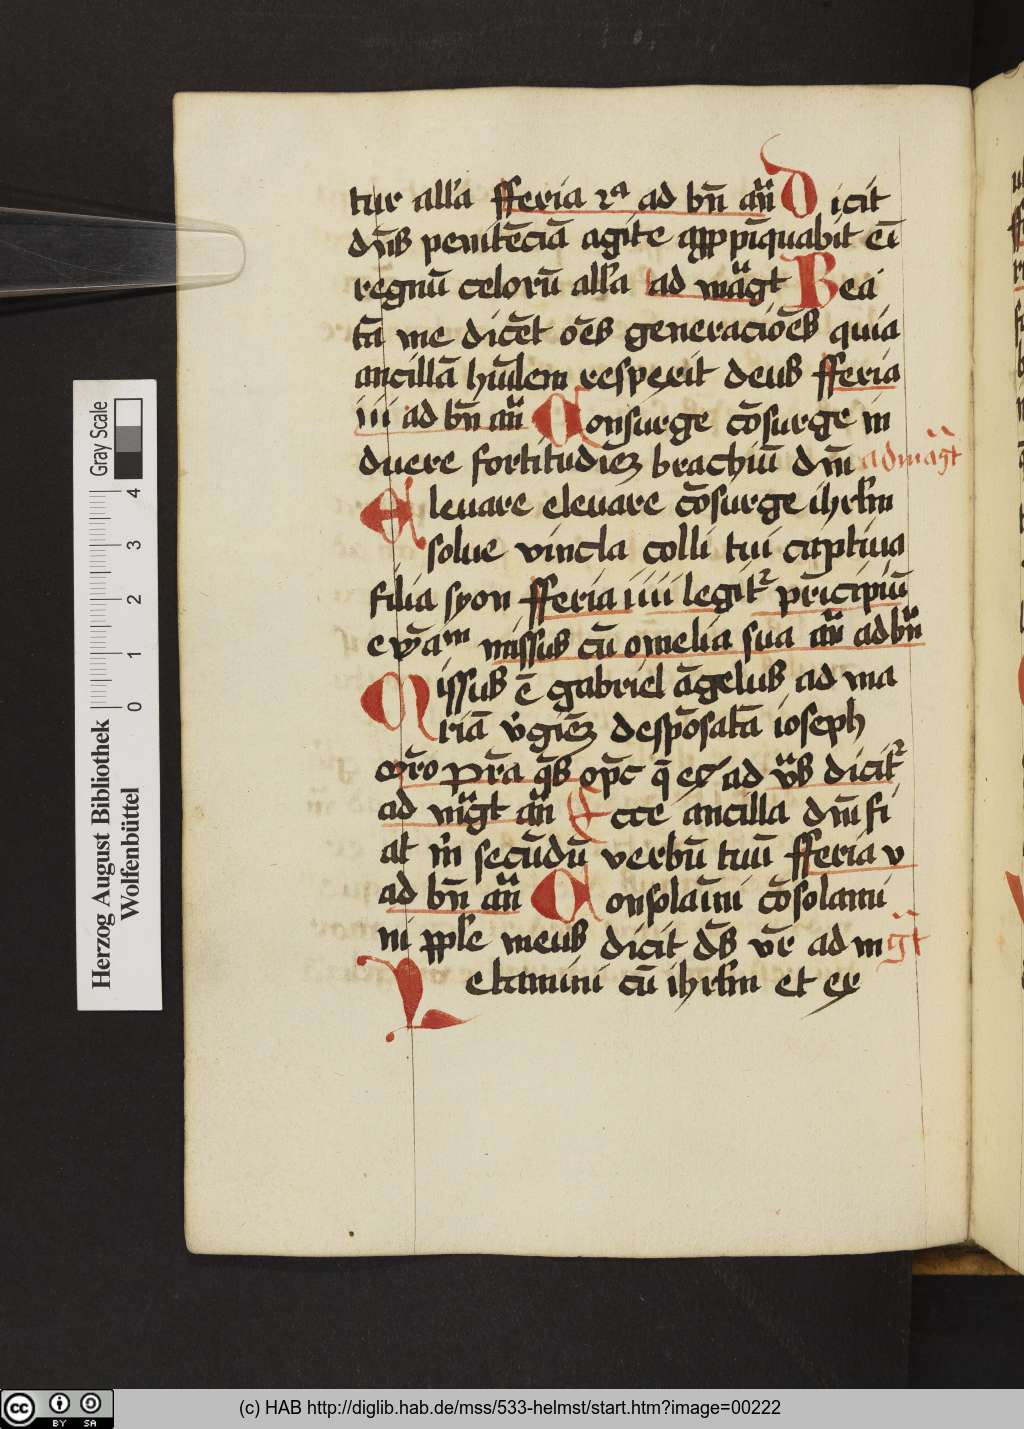 tur all'a fferia 2ª ad bn̄ an̄ Dicit
dn̄s penitēciā agite appp̄īquabit eī
regnū celorū all'a ad māgt Bea
tā me dicēt oēs generaciōēs quia
ancillā hūīlem respexit deus fferia
iii ad bn̄ an̄ Consurge cōsurge in
duere fortitudīēꝫ brachiū dn̄i ad māgt
Eleuare eleuare cōsurge ihrl'm
solue vincla colli tui captiua
filia syon fferia iiii legit᷑ prīcipiū
ewāᵐ missus cū omelia sua an̄ ad bn̄
Missus ē gabriel āgelus ad ma
riā v̄gīēꝫ despōsatā ioseph
dicit᷑
ad māgt an̄ Ecce ancilla dn̄i fi
at m̄ secūdū verbū tuū fferia v
ad bn̄ an̄ Consolaīni cōsolami
ni pple meus dicit ds̄ vr̄ ad mgt
Letamini cū ihrl'm et ex
Herzog August Bibliothek
Wolfenbüttel
0 1 2 3 4
Gray Scale
cc BY SA
(c) HAB http://diglib.hab.de/mss/533-helmst/start.htm?image=00222